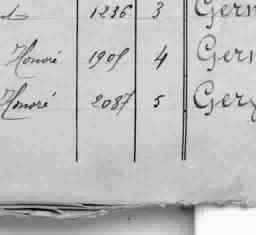 1236 3 Germ
Honoré 1905 4 Germ
Honoré 2087 5 Gery